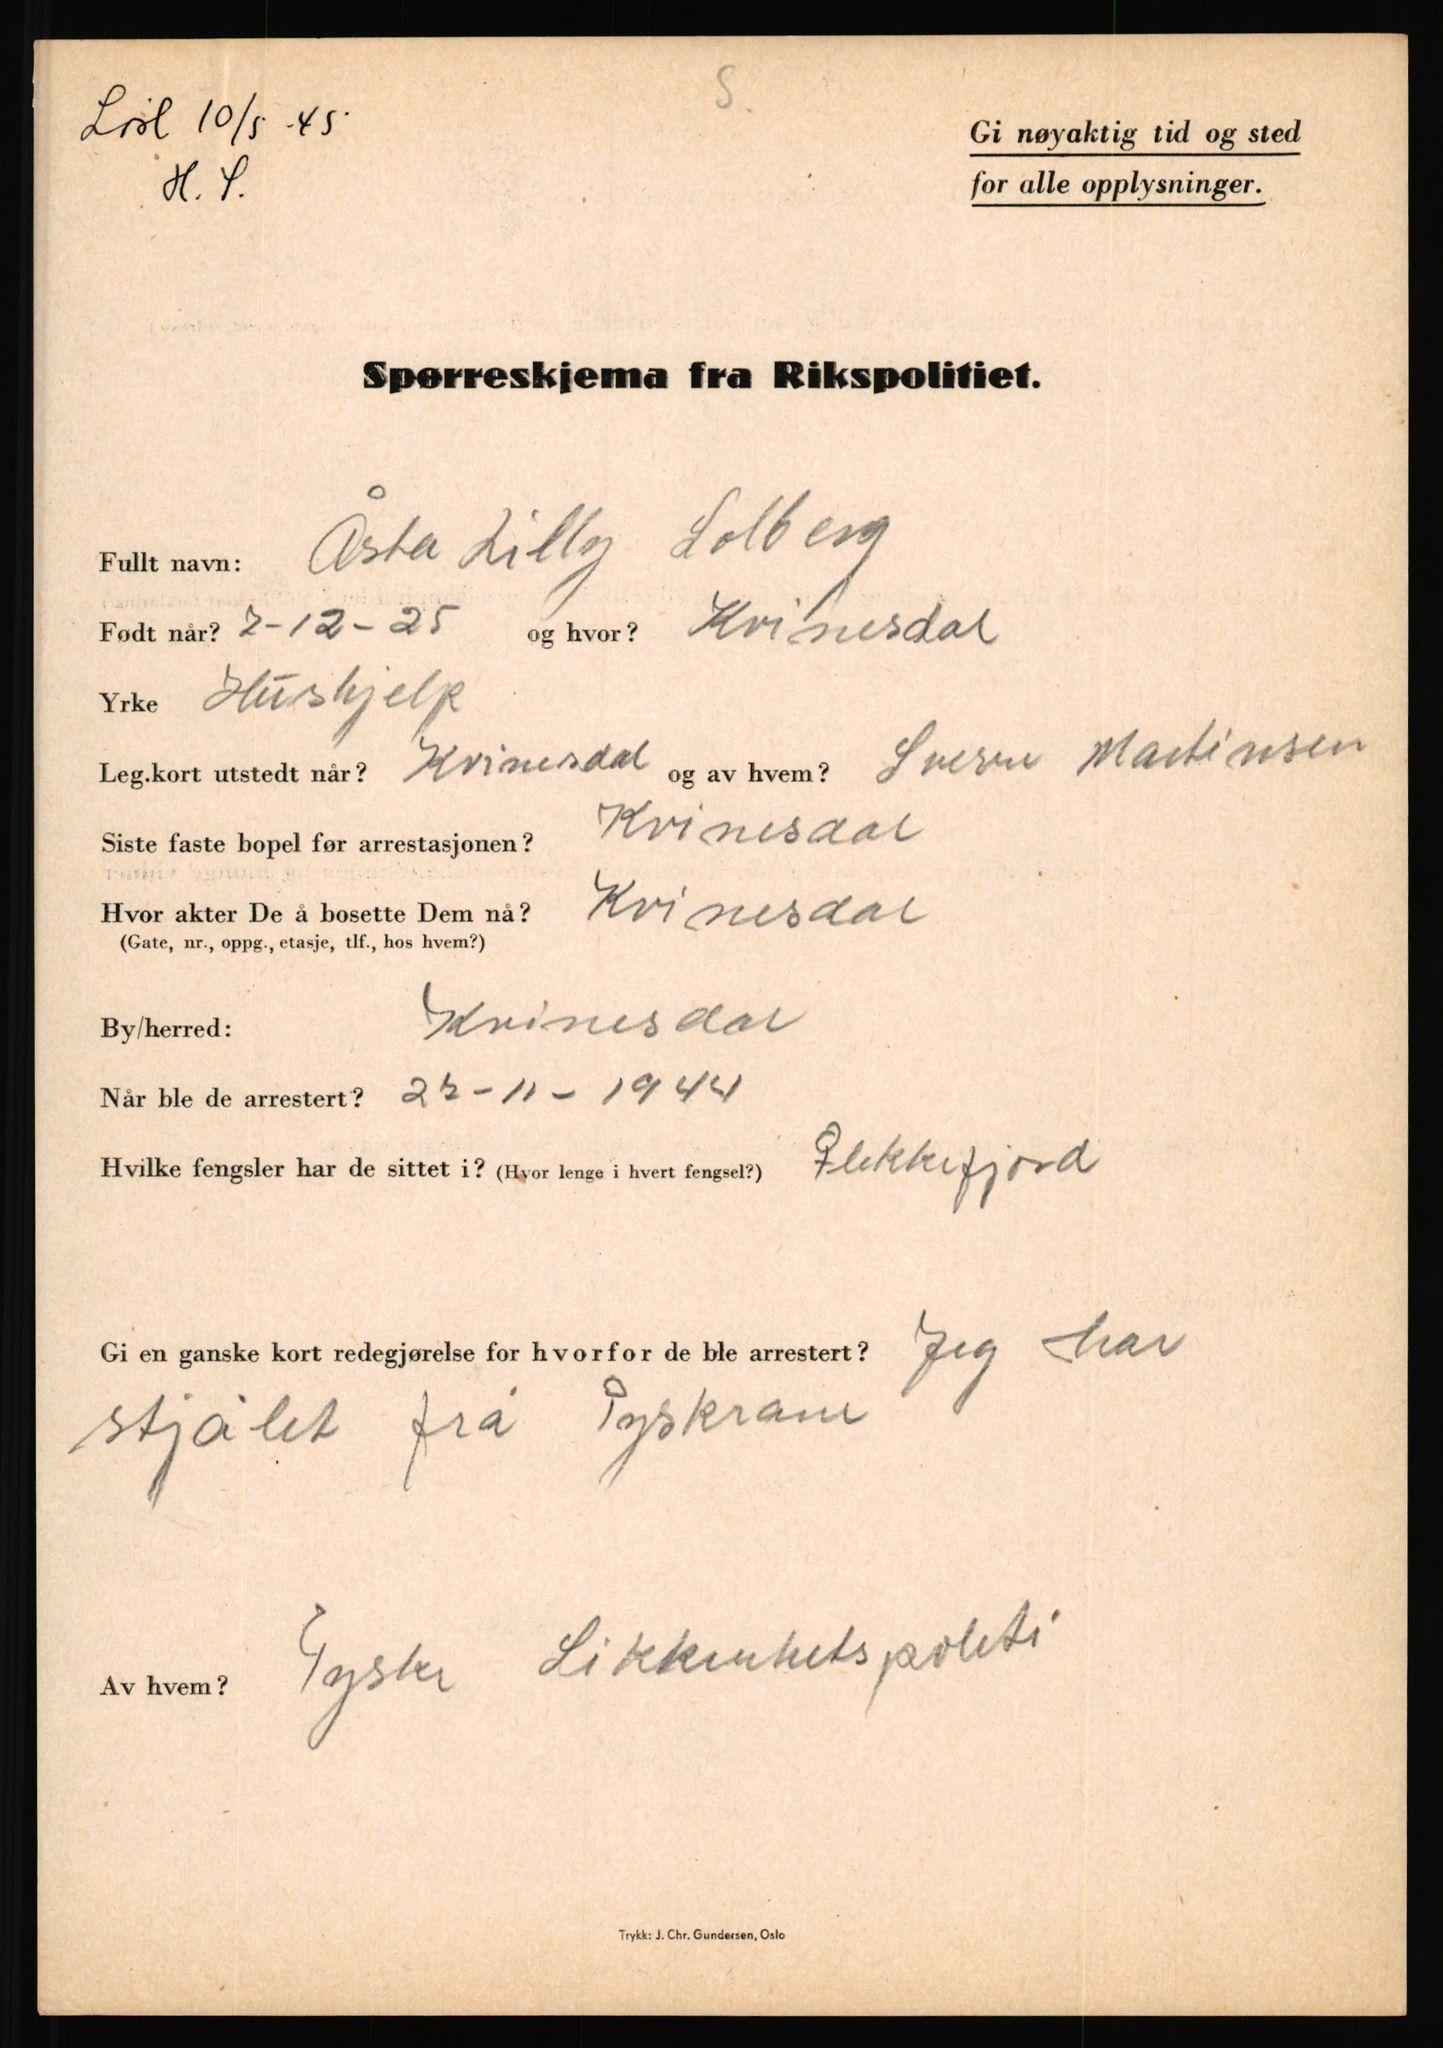 S.
Løsl 10/5 -45
H. S.
Gi nøyaktig tid og sted
for alle opplysninger.
Spørreskjema fra Rikspolitiet.
Fullt navn: Åsta Lilly Solberg
Født når? 7-12-25 og hvor? Kvinesdal
Yrke Hushjelp
Leg.kort utstedt når? Kvinesdal og av hvem? Sverre Martinsen
Siste faste bopel før arrestasjonen? Kvinesdal
Hvor akter De å bosette Dem nå? Kvinesdal
(Gate, nr., oppg., etasje, tlf., hos hvem?)
By/herred: Kvinesdal
Når ble de arrestert? 27-11-1944
Hvilke fengsler har de sittet i? (Hvor lenge i hvert fengsel?) Flekkefjord
Gi en ganske kort redegjørelse for hvorfor de ble arrestert? Jeg har
stjålet frå Tyskrane
Av hvem? Tyske Sikkerhetspoleti
Trykk: J. Chr. Gundersen, Oslo